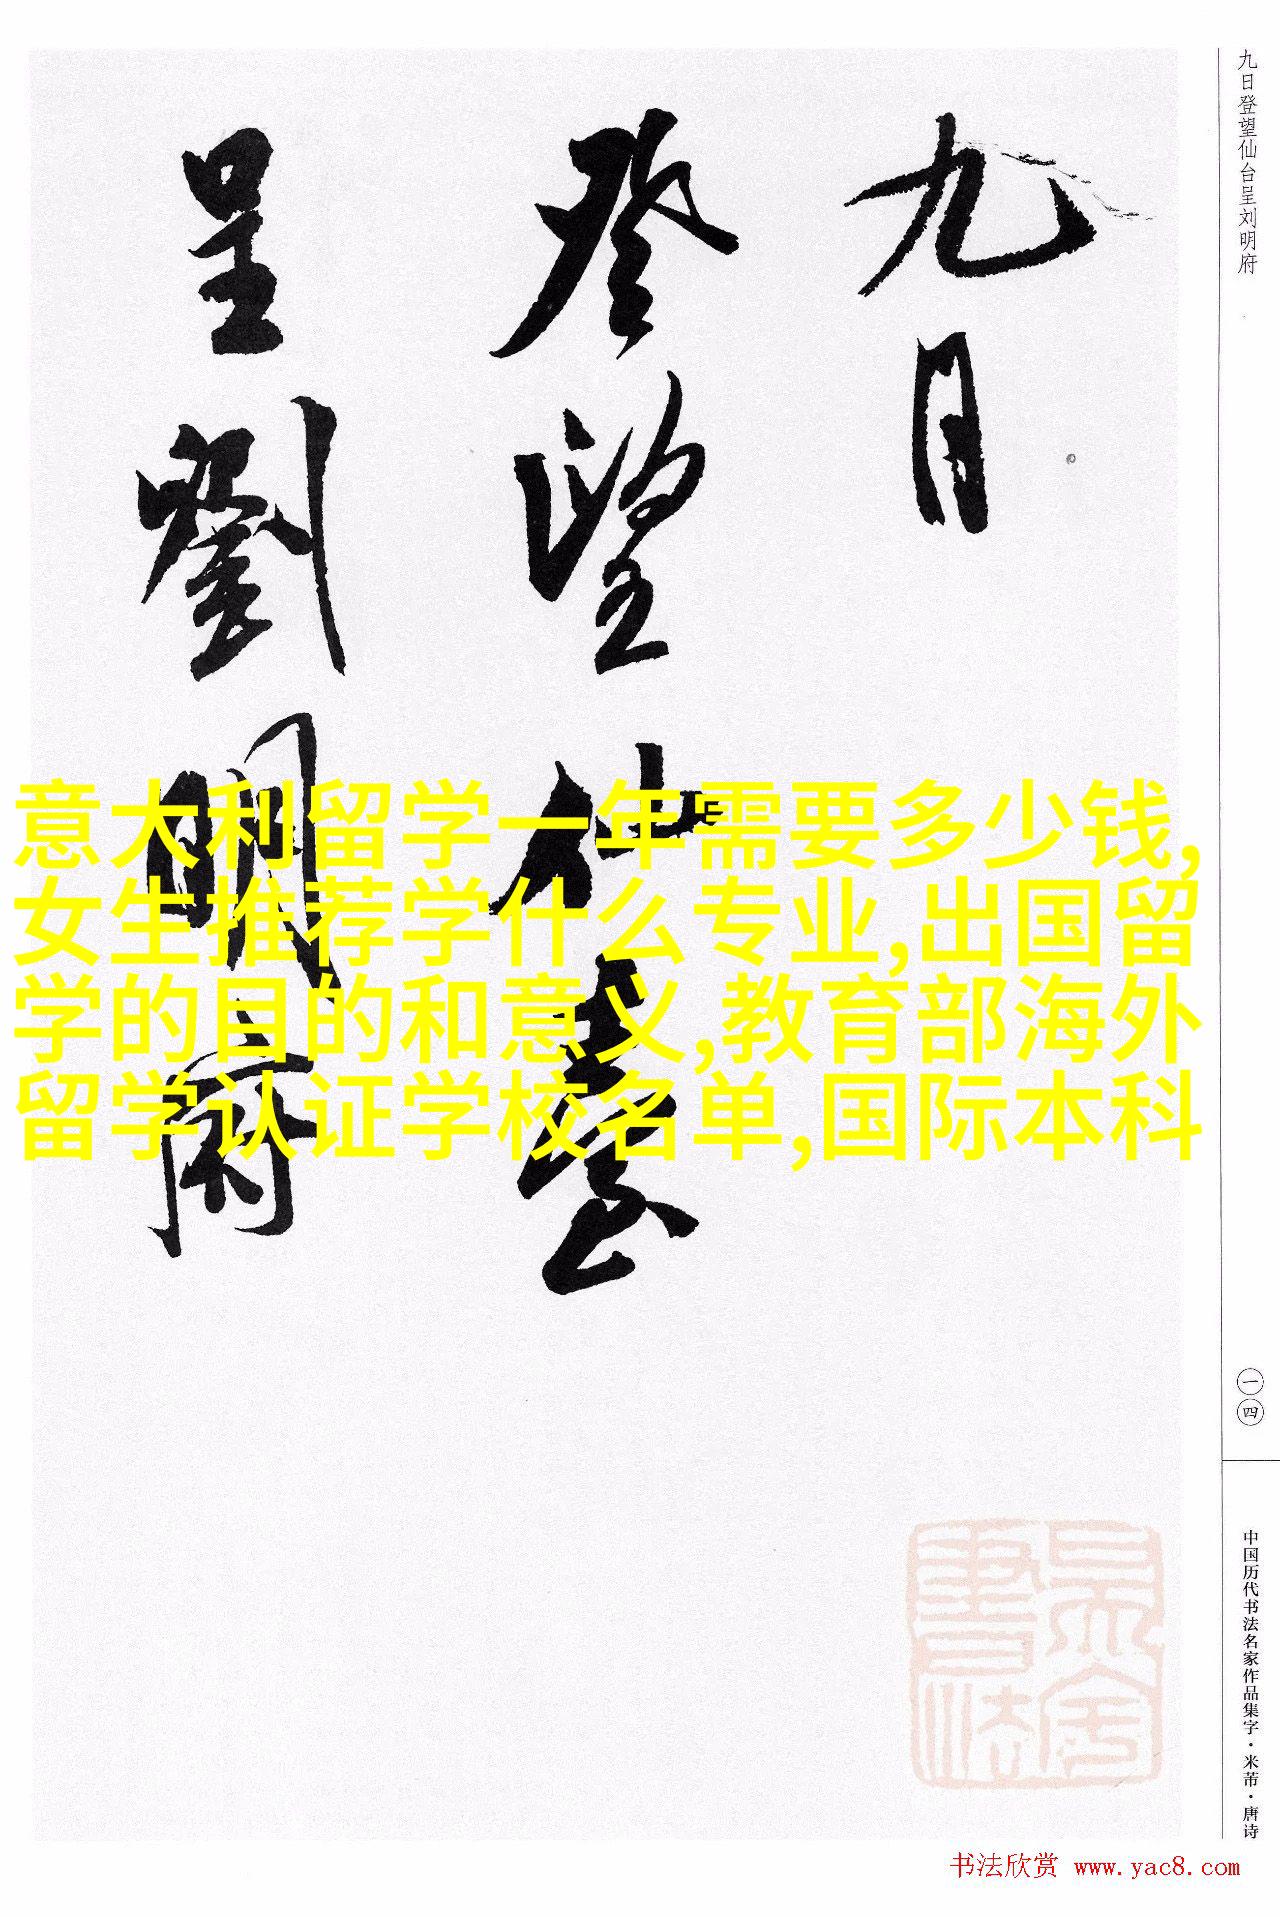 九日登望仙台呈刘明府
九日
登望仙臺
呈劉明府
意大利留学一年需要多少钱,
女生推荐学什么专业,出国留
学的目的和意义,教育部海外
留学认证学校名单,国际本科
一四
中国历代书法名家作品集字·米芾·唐诗
书法欣赏 www.yac8.com